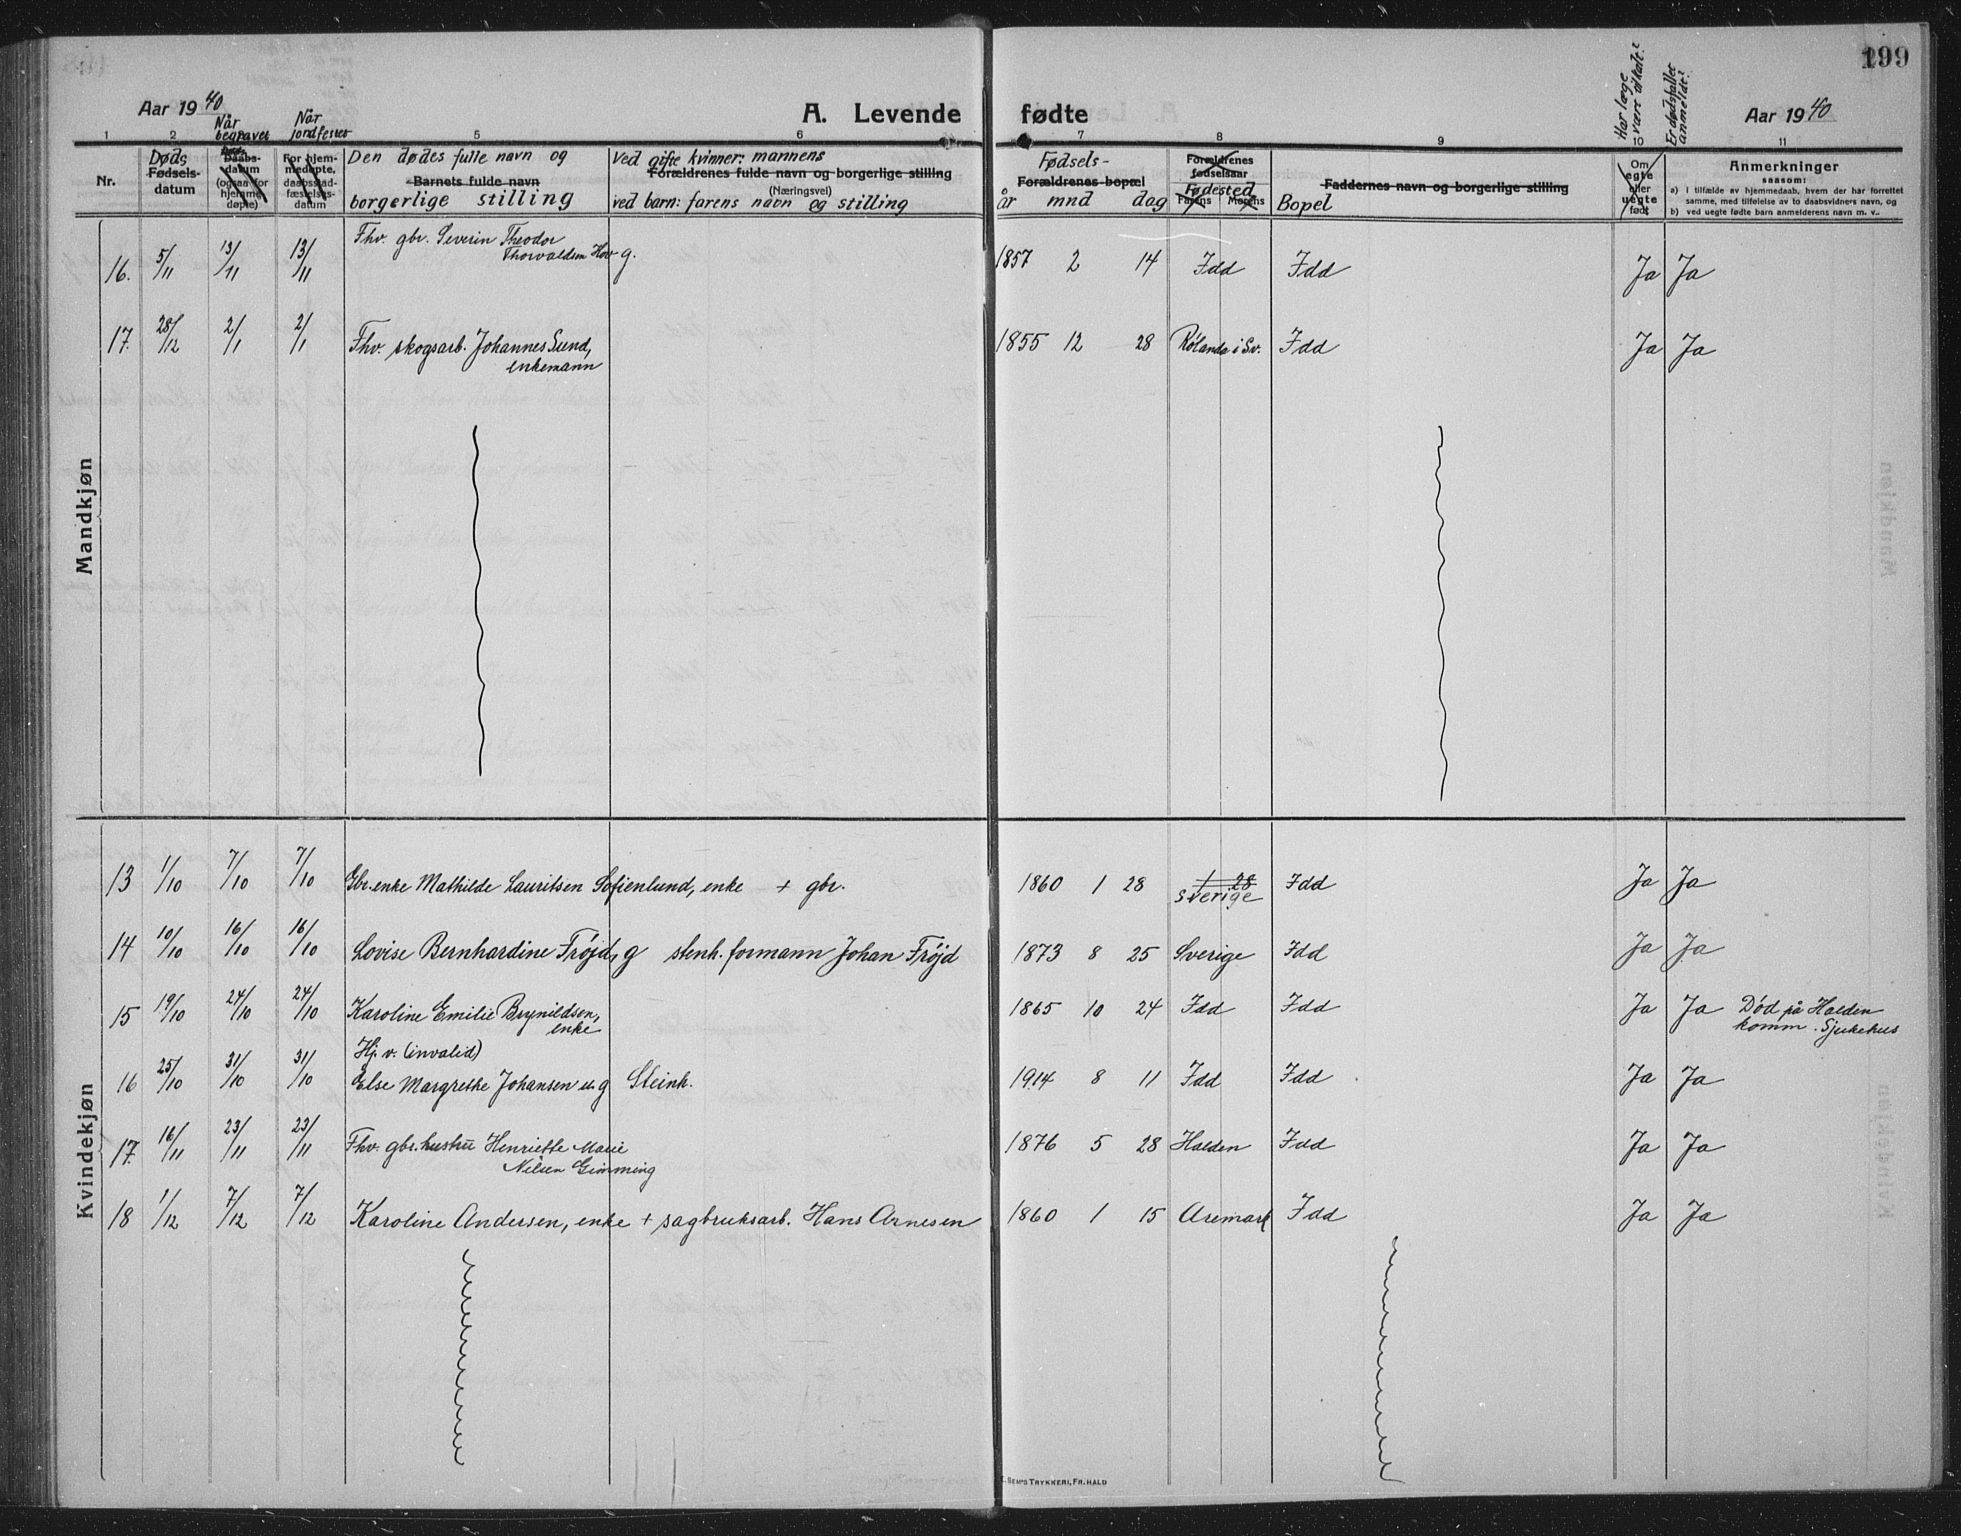 199
Aar 1940
A. Levende fødte
Aar 1940
Når begravet
Når jordfestet
Har læge vært tilkalt?
Er dødsfallet anmeldt?
1 2 5 6 7 8 9 10 11
Nr.
Døds
Fødsels-
datum
Daabs-
datum
(ogsaa for
hjemme-
døpte)
For hjem-
medøpte,
daabsstad-
fæstelses-
datum
Den dødes fulle navn og
Barnets fulde navn
borgerlige stilling
Ved gifte kvinner: mannens
Forældrenes fulde navn og borgerlige stilling
(Næringsvei)
ved barn: farens navn og stilling
Fødsels-
Forældrenes bopæl
år mnd dag
Forældrenes
fødselsaar
Fødested
Farens Morens
Faddernes navn og borgerlige stilling
Bopel
Om
egte
eller
uegte
født
Anmerkninger
saasom:
a) i tilfælde av hjemmedaab, hvem der har forrettet
samme, med tilføielse av to daabsvidners navn, og
b) ved uegte fødte barn anmelderens navn m. v.
Mandkjøn
Fhv. gbr. Severin Theodor
Thorvaldsen Hov g.
16. 5/11 13/11 13/11 1857 2 14 Idd Idd Ja Ja
17. 28/12 2/1 2/1 Fhv. skogsarb. Johannes Lund, 1855 12 28 Rölanda i Sv. Idd Ja Ja
enkemann
Kvindekjøn
13 1/10 7/10 7/10 Gbr.enke Mathilde Lauritsen Sofienlund, enke + gbr. 1860 1 28 1 28 Idd Ja Ja
Sverige
14 10/10 16/10 16/10 Lovise Bernhardine Fröjd, g stenh. formann Johan Fröjd 1873 8 25 Sverige Idd Ja Ja
15 19/10 24/10 24/10 Karoline Emilie Brynildsen, 1865 10 24 Idd Idd Ja Ja Død på Halden
enke komm. Sjukehus
Hj. v. (invalid)
16 25/10 31/10 31/10 Else Margrethe Johansen u.g Steinh. 1914 8 11 Idd Idd Ja Ja
17. 16/11 23/11 23/11 Fhv. gbr.hustru Henriette Marie 1876 5 28 Halden Idd Ja Ja
Nilsen Gimming
18 1/12 7/12 7/12 Karoline Andersen, enke + sagbruksarb. Hans Arnesen 1860 1 15 Aremark Idd Ja Ja
E. SEM'S TRYKKERI, FR.HALD